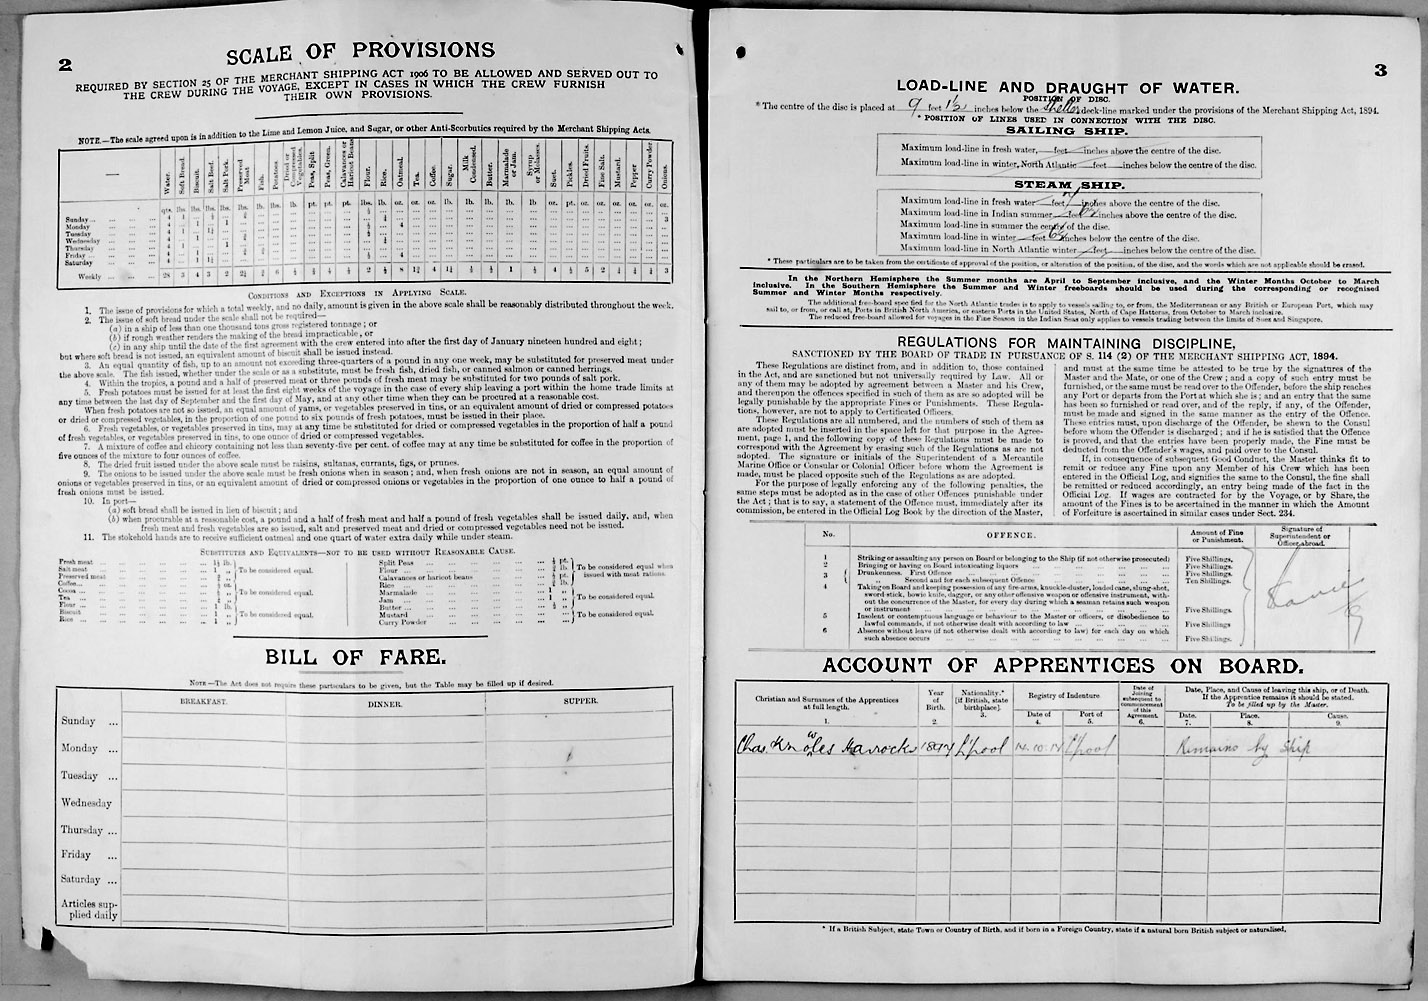 2
SCALE OF PROVISIONS
REQUIRED BY SECTION 25 OF THE MERCHANT SHIPPING ACT 1906 TO BE ALLOWED AND SERVED OUT TO
THE CREW DURING THE VOYAGE, EXCEPT IN CASES IN WHICH THE CREW FURNISH
THEIR OWN PROVISIONS.
NOTE.—The scale agreed upon is in addition to the Lime and Lemon Juice, and Sugar, or other Anti-Scorbutics required by the Merchant Shipping Acts.
— Water. Soft Bread. Biscuit. Salt Beef. Salt Pork. Preserved Meat. Fish. Potatoes. Dried or Compressed Vegetables. Peas, Split Peas, Green. Calavances or Haricot Beans Flour. Rice. Oatmeal. Tea. Coffee. Sugar. Milk Condensed. Butter. Marmalade or Jam. Syrup or Molasses. Suet. Pickles. Dried Fruits. Fine Salt. Mustard. Pepper Curry Powder Onions.
Sunday
Monday
Tuesday
Wednesday
Thursday
Friday
Saturday
Weekly
CONDITIONS AND EXCEPTIONS IN APPLYING SCALE.
1. The issue of provisions for which a total weekly, and no daily, amount is given in the above scale shall be reasonably distributed throughout the week.
2. The issue of soft bread under the scale shall not be required—
(a) in a ship of less than one thousand tons gross registered tonnage; or
(b) if rough weather renders the making of the bread impracticable, or
(c) in any ship until the date of the first agreement with the crew entered into after the first day of January nineteen hundred and eight;
but where soft bread is not issued, an equivalent amount of biscuit shall be issued instead.
3. An equal quantity of fish, up to an amount not exceeding three-quarters of a pound in any one week, may be substituted for preserved meat under
the above scale. The fish issued, whether under the scale or as a substitute, must be fresh fish, dried fish, or canned salmon or canned herrings.
4. Within the tropics, a pound and a half of preserved meat or three pounds of fresh meat may be substituted for two pounds of salt pork.
5. Fresh potatoes must be issued for at least the first eight weeks of the voyage in the case of every ship leaving a port within the home trade limits at
any time between the last day of September and the first day of May, and at any other time when they can be procured at a reasonable cost.
When fresh potatoes are not so issued, an equal amount of yams, or vegetables preserved in tins, or an equivalent amount of dried or compressed potatoes
or dried or compressed vegetables, in the proportion of one pound to six pounds of fresh potatoes, must be issued in their place.
6. Fresh vegetables, or vegetables preserved in tins, may at any time be substituted for dried or compressed vegetables in the proportion of half a pound
of fresh vegetables, or vegetables preserved in tins, to one ounce of dried or compressed vegetables.
7. A mixture of coffee and chicory containing not less than seventy-five per cent. of coffee may at any time be substituted for coffee in the proportion of
five ounces of the mixture to four ounces of coffee.
8. The dried fruit issued under the above scale must be raisins, sultanas, currants, figs, or prunes.
9. The onions to be issued under the above scale must be fresh onions when in season; and, when fresh onions are not in season, an equal amount of
onions or vegetables preserved in tins, or an equivalent amount of dried or compressed onions or vegetables in the proportion of one ounce to half a pound of
fresh onions must be issued.
10. In port—
(a) soft bread shall be issued in lieu of biscuit; and
(b) when procurable at a reasonable cost, a pound and a half of fresh meat and half a pound of fresh vegetables shall be issued daily, and, when
fresh meat and fresh vegetables are so issued, salt and preserved meat and dried or compressed vegetables need not be issued.
11. The stokehold hands are to receive sufficient oatmeal and one quart of water extra daily while under steam.
SUBSTITUTES AND EQUIVALENTS—NOT TO BE USED WITHOUT REASONABLE CAUSE.
Fresh meat
Salt meat
Preserved meat
To be considered equal.
Coffee
Cocoa
Tea
To be considered equal.
Flour
Biscuit
Rice
To be considered equal.
Split Peas
Flour
Calavances or haricot beans
Rice
To be considered equal when issued with meat rations.
Marmalade
Jam
Butter
To be considered equal.
Mustard
Curry Powder
To be considered equal.
BILL OF FARE.
NOTE—The Act does not require these particulars to be given, but the Table may be filled up if desired.
BREAKFAST. DINNER. SUPPER.
Sunday ...
Monday ...
Tuesday ...
Wednesday
Thursday ...
Friday ...
Saturday ...
Articles sup-
plied daily
3
LOAD-LINE AND DRAUGHT OF WATER.
POSITION OF DISC.
* The centre of the disc is placed at 9 feet 1½ inches below the Shelter deck-line marked under the provisions of the Merchant Shipping Act, 1894.
* POSITION OF LINES USED IN CONNECTION WITH THE DISC.
SAILING SHIP.
Maximum load-line in fresh water, feet inches above the centre of the disc.
Maximum load-line in winter, North Atlantic feet inches below the centre of the disc.
STEAM SHIP.
Maximum load-line in fresh water feet inches above the centre of the disc.
Maximum load-line in Indian summer feet inches above the centre of the disc.
Maximum load-line in summer the centre of the disc.
Maximum load-line in winter feet inches below the centre of the disc.
Maximum load-line in North Atlantic winter feet inches below the centre of the disc.
* These particulars are to be taken from the certificate of approval of the position, or alteration of the position, of the disc, and the words which are not applicable should be erased.
In the Northern Hemisphere the Summer months are April to September inclusive, and the Winter Months October to March
inclusive. In the Southern Hemisphere the Summer and Winter freeboards should be used during the corresponding or recognised
Summer and Winter Months respectively.
The additional free-board specified for the North Atlantic trades is to apply to vessels sailing to, or from, the Mediterranean or any British or European Port, which may
sail to, or from, or call at, Ports in British North America, or eastern Ports in the United States, North of Cape Hatteras, from October to March inclusive.
The reduced free-board allowed for voyages in the Fine Season in the Indian Seas only applies to vessels trading between the limits of Suez and Singapore.
REGULATIONS FOR MAINTAINING DISCIPLINE,
SANCTIONED BY THE BOARD OF TRADE IN PURSUANCE OF S. 114 (2) OF THE MERCHANT SHIPPING ACT, 1894.
These Regulations are distinct from, and in addition to, those contained
in the Act, and are sanctioned but not universally required by Law. All or
any of them may be adopted by agreement between a Master and his Crew,
and thereupon the offences specified in such of them as are so adopted will be
legally punishable by the appropriate Fines or Punishments. These Regula-
tions, however, are not to apply to Certificated Officers.
These Regulations are all numbered, and the numbers of such of them as
are adopted must be inserted in the space left for that purpose in the Agree-
ment, page 1, and the following copy of these Regulations must be made to
correspond with the Agreement by erasing such of the Regulations as are not
adopted. The signature or initials of the Superintendent of a Mercantile
Marine Office or Consular or Colonial Officer before whom the Agreement is
made, must be placed opposite such of the Regulations as are adopted.
For the purpose of legally enforcing any of the following penalties, the
same steps must be adopted as in the case of other Offences punishable under
the Act; that is to say, a statement of the Offence must, immediately after its
commission, be entered in the Official Log Book by the direction of the Master,
and must at the same time be attested to be true by the signatures of the
Master and the Mate, or one of the Crew; and a copy of such entry must be
furnished, or the same must be read over to the Offender, before the ship reaches
any Port or departs from the Port at which she is; and an entry that the same
has been so furnished or read over, and of the reply, if any, of the Offender,
must be made and signed in the same manner as the entry of the Offence.
These entries must, upon discharge of the Offender, be shewn to the Consul
before whom the Offender is discharged; and if he is satisfied that the Offence
is proved, and that the entries have been properly made, the Fine must be
deducted from the Offender's wages, and paid over to the Consul.
If, in consequence of subsequent Good Conduct, the Master thinks fit to
remit or reduce any Fine upon any Member of his Crew which has been
entered in the Official Log, and signifies the same to the Consul, the fine shall
be remitted or reduced accordingly, an entry being made of the fact in the
Official Log. If wages are contracted for by the Voyage, or by Share, the
Amount of the Fines is to be ascertained in the manner in which the Amount
of Forfeiture is ascertained in similar cases under Sect. 234.
No. OFFENCE. Amount of Fine or Punishment. Signature of Superintendent or Officer abroad.
1 Striking or assaulting any person on Board or belonging to the Ship (if not otherwise prosecuted) Five Shillings.
2 Bringing or having on Board intoxicating liquors Five Shillings.
3 Drunkenness. First Offence Five Shillings.
,, Second and for each subsequent Offence Ten Shillings.
4 Taking on Board and keeping possession of any fire-arms, knuckle-duster, loaded cane, slung-shot,
sword-stick, bowie knife, dagger, or any other offensive weapon or offensive instrument, with-
out the concurrence of the Master, for every day during which a seaman retains such weapon
or instrument Five Shillings.
5 Insolent or contemptuous language or behaviour to the Master or officers, or disobedience to
lawful commands, if not otherwise dealt with according to law Five Shillings
6 Absence without leave (if not otherwise dealt with according to law) for each day on which
such absence occurs Five Shillings.
ACCOUNT OF APPRENTICES ON BOARD.
Christian and Surnames of the Apprentices at full length. 1.
Year of Birth. 2.
Nationality.* [if British, state birthplace]. 3.
Registry of Indenture
Date of 4.
Port of 5.
Date of Joining subsequent to commencement of this Agreement. 6.
Date, Place, and Cause of leaving this ship, or of Death.
If the Apprentice remains it should be stated.
To be filled up by the Master.
Date. 7.
Place. 8.
Cause. 9.
Chas Knowles Harrocks 1897 L'pool L'pool Remains by Ship
* If a British Subject, state Town or Country of Birth, and if born in a Foreign Country, state if a natural born British subject or naturalised.